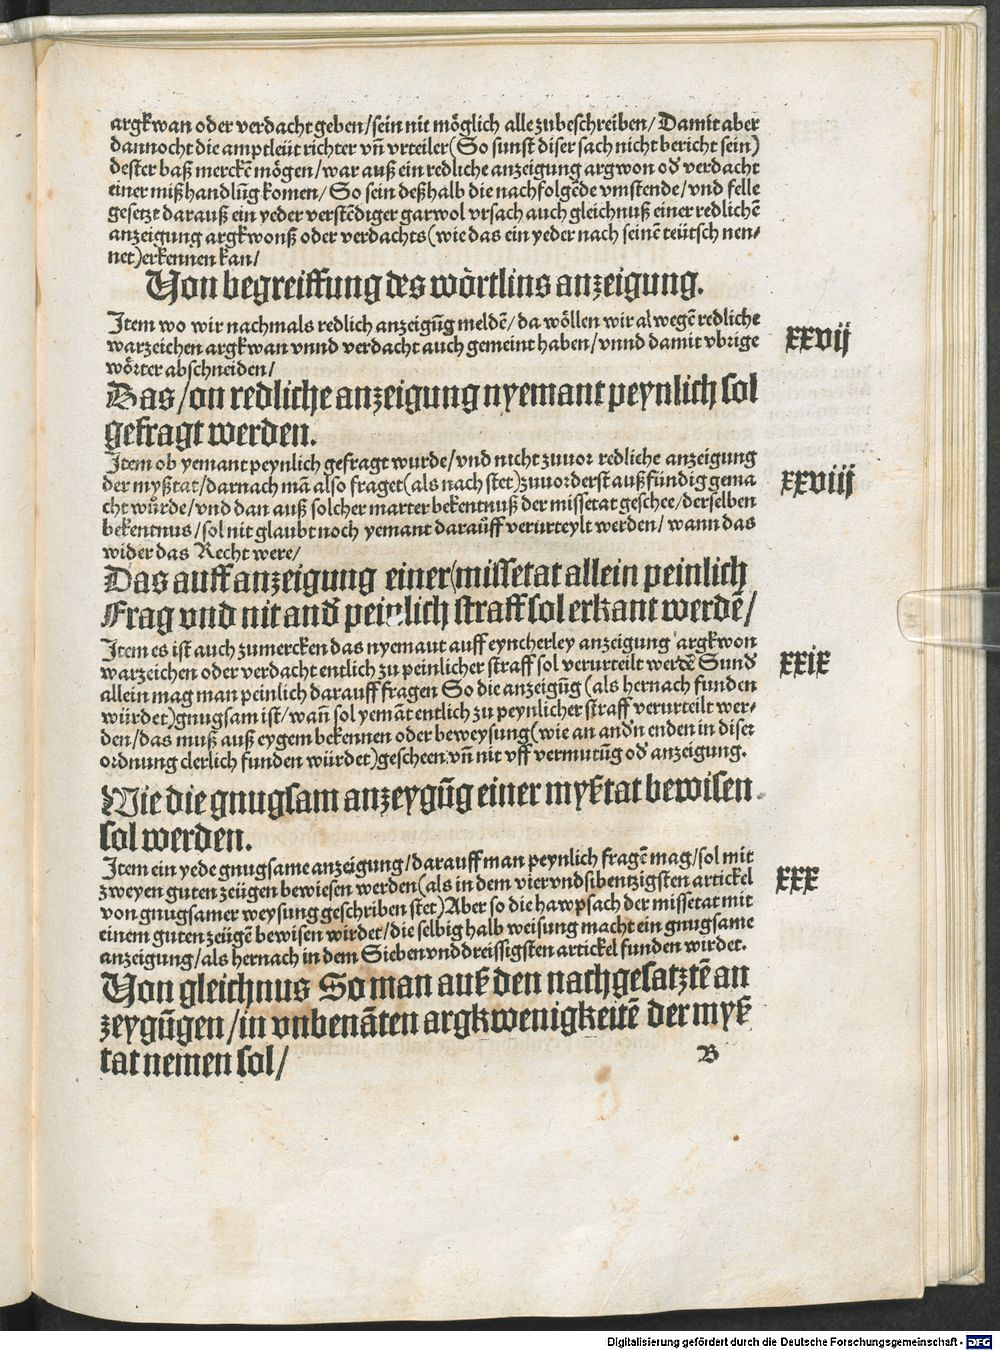 argkwan oder verdacht geben/sein nit möglich alle zubeschreiben/ Damit aber
dannocht die amptleüt richter vñ vrteiler (So sunst diser sach nicht bericht sein)
dester baß merckē mögen/ war auß ein redliche anzeigung argwon od̕ verdacht
einer mißhandlūg komen/ So sein deßhalb die nachfolgēde vmstende/ vnd felle
gesetzt darauß ein yeder verstēdiger garwol vrsach auch gleichnuß einer redlichē
anzeigung argkwonß oder verdachts (wie das ein yeder nach seinē teütsch nen-
net) erkennen kan/
Von begreiffung des wörtlins anzeigung.
Item wo wir nachmals redlich anzeigūg meldē/ da wöllen wir alwegē redliche
warzeichen argkwan vnnd verdacht auch gemeint haben/ vnnd damit vbrige
wörter abschneiden/
xxvij
Das/on redliche anzeigung nyemant peynlich sol
gefragt werden.
Item ob yemant peynlich gefragt wurde/ vnd nicht zuuor redliche anzeigung
der myßtat/ darnach mā also fraget (als nach stet) zuuorderst außfündig gema
cht würde/ vnd dan auß solcher marter bekentnuß der missetat geschee/ derselben
bekentnus/ sol nit glaubt noch yemant darauff verurteylt werden/ wann das
wider das Recht were/
xxviij
Das auff anzeigung einer missetat allein peinlich
Frag vnd nit and̕ peinlich straff sol erkant werdē/
Item es ist auch zumercken das nyemant auff eyncherley anzeigung argkwon
warzeichen oder verdacht entlich zu peinlicher straff sol verurteilt werdē Sund̕
allein mag man peinlich darauff fragen So die anzeigūg (als hernach funden
würdet) gnugsam ist/ wañ sol yemāt entlich zu peynlicher straff verurteilt wer-
den/ das muß auß eygem bekennen oder beweysung (wie an and̕n enden in diser
ordnung clerlich funden würdet) gescheen vñ nit vff vermutūg od̕ anzeigung.
xxix
Wie die gnugsam anzeygūg einer myßtat bewisen
sol werden.
Item ein yede gnugsame anzeigung/ darauff man peynlich fragē mag/ sol mit
zweyen guten zeügen bewiesen werden (als in dem vier vnd sibentzigsten artickel
von gnugsamer weysung geschriben stet) Aber so die hawpsach der missetat mit
einem guten zeügē bewisen wirdet/ die selbig halb weisung macht ein gnugsame
anzeigung/ als hernach in dem Sieben vnd dreissigsten artickel funden wirdet.
xxx
Von gleichnus So man auß den nachgesatztē an
zeygūgen/in vnbenāten argkwenigkeitē der myß
tat nemen sol/
B
Digitalisierung gefördert durch die Deutsche Forschungsgemeinschaft - DFG